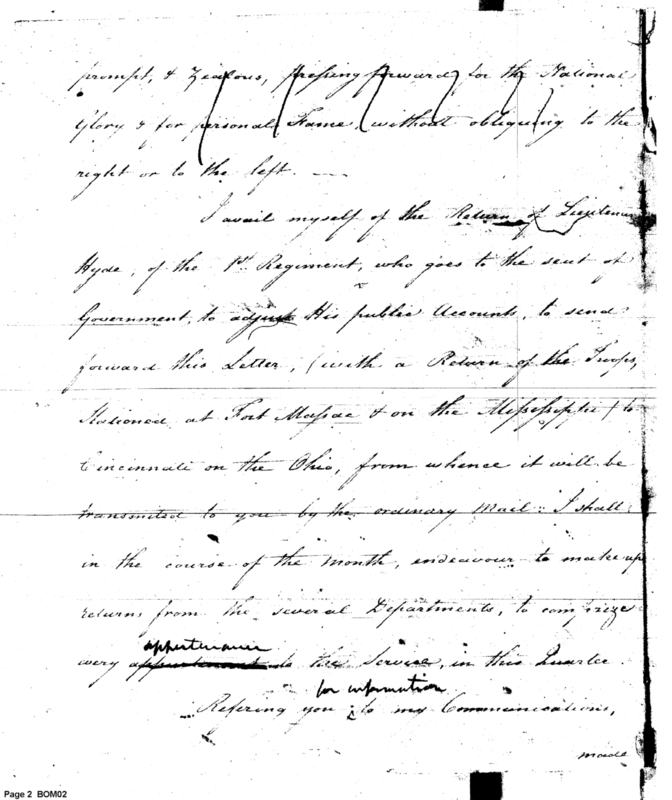 prompt, & Zealous, pressing forward for the National
Glory & for personal Fame, without obliquing to the
right or to the left. —
I avail myself of the Return of Lieutenan
Hyde, of the 1st Regiment, who goes to the seat of
Government, to adjust His public Accounts, to send
forward this Letter, (with a Return of the Troops,
Stationed at Fort Massac & on the Missisippi) to
Cincinnati on the Ohio, from whence it will be
transmited to you by the ordinary Mail: I shall
in the course of the Month, endeavour to make up
returns from the several Departments, to comprize
every appertenance to the Service, in this Quarter.
Refering you for information to my Communications,
made
Page 2 BOM02